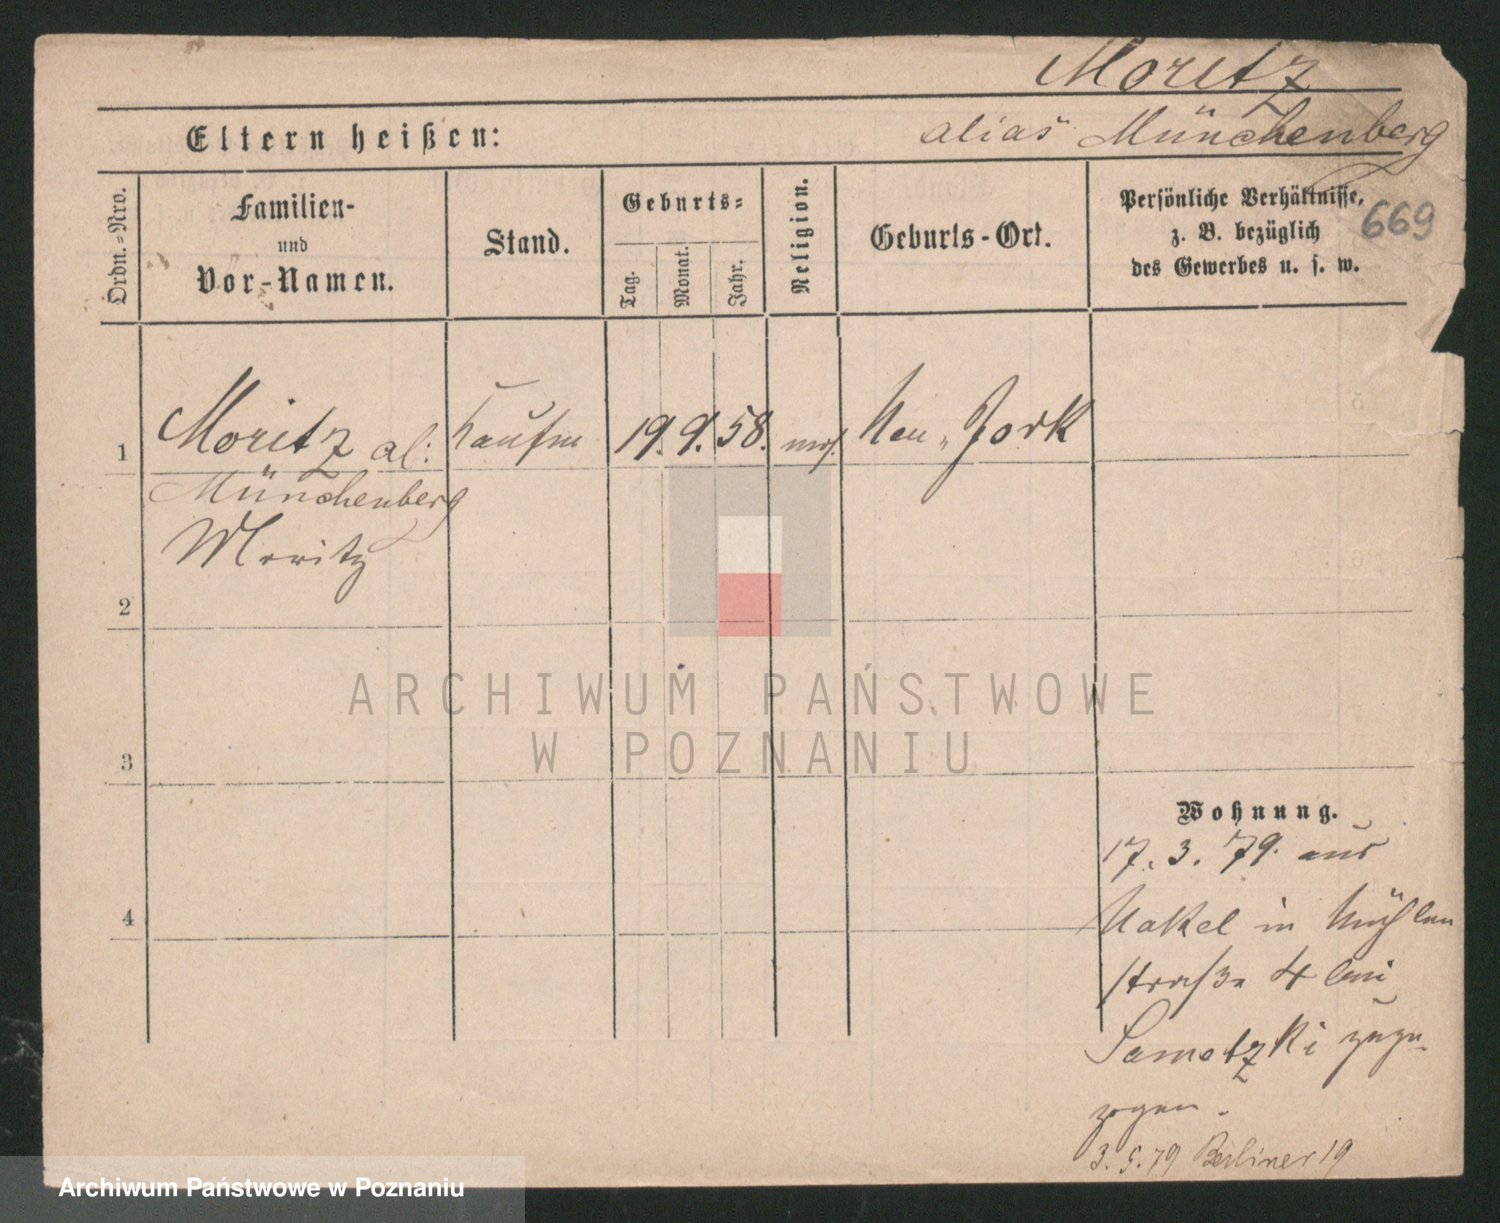 Moritz
alias Münchenberg
Eltern heißen:
669
Ordn.=Nro.
Familien-
und
Vor-Namen.
Stand.
Geburts=
Tag.
Monat.
Jahr.
Religion.
Geburts-Ort.
Persönliche Verhältnisse,
z. B. bezüglich
des Gewerbes u. s. w.
1
Moritz al:
Münchenberg
Moritz
Kaufm
19. 9. 58.
mos.
Neu-Jork
2
3
4
ARCHIWUM PAŃSTWOWE
W POZNANIU
Wohnung.
17. 3. 79. aus
Nakel in Mühlen
straße 4 bei
Sametzki zuge-
zogen.
3. 5. 79 Berliner 19
Archiwum Państwowe w Poznaniu